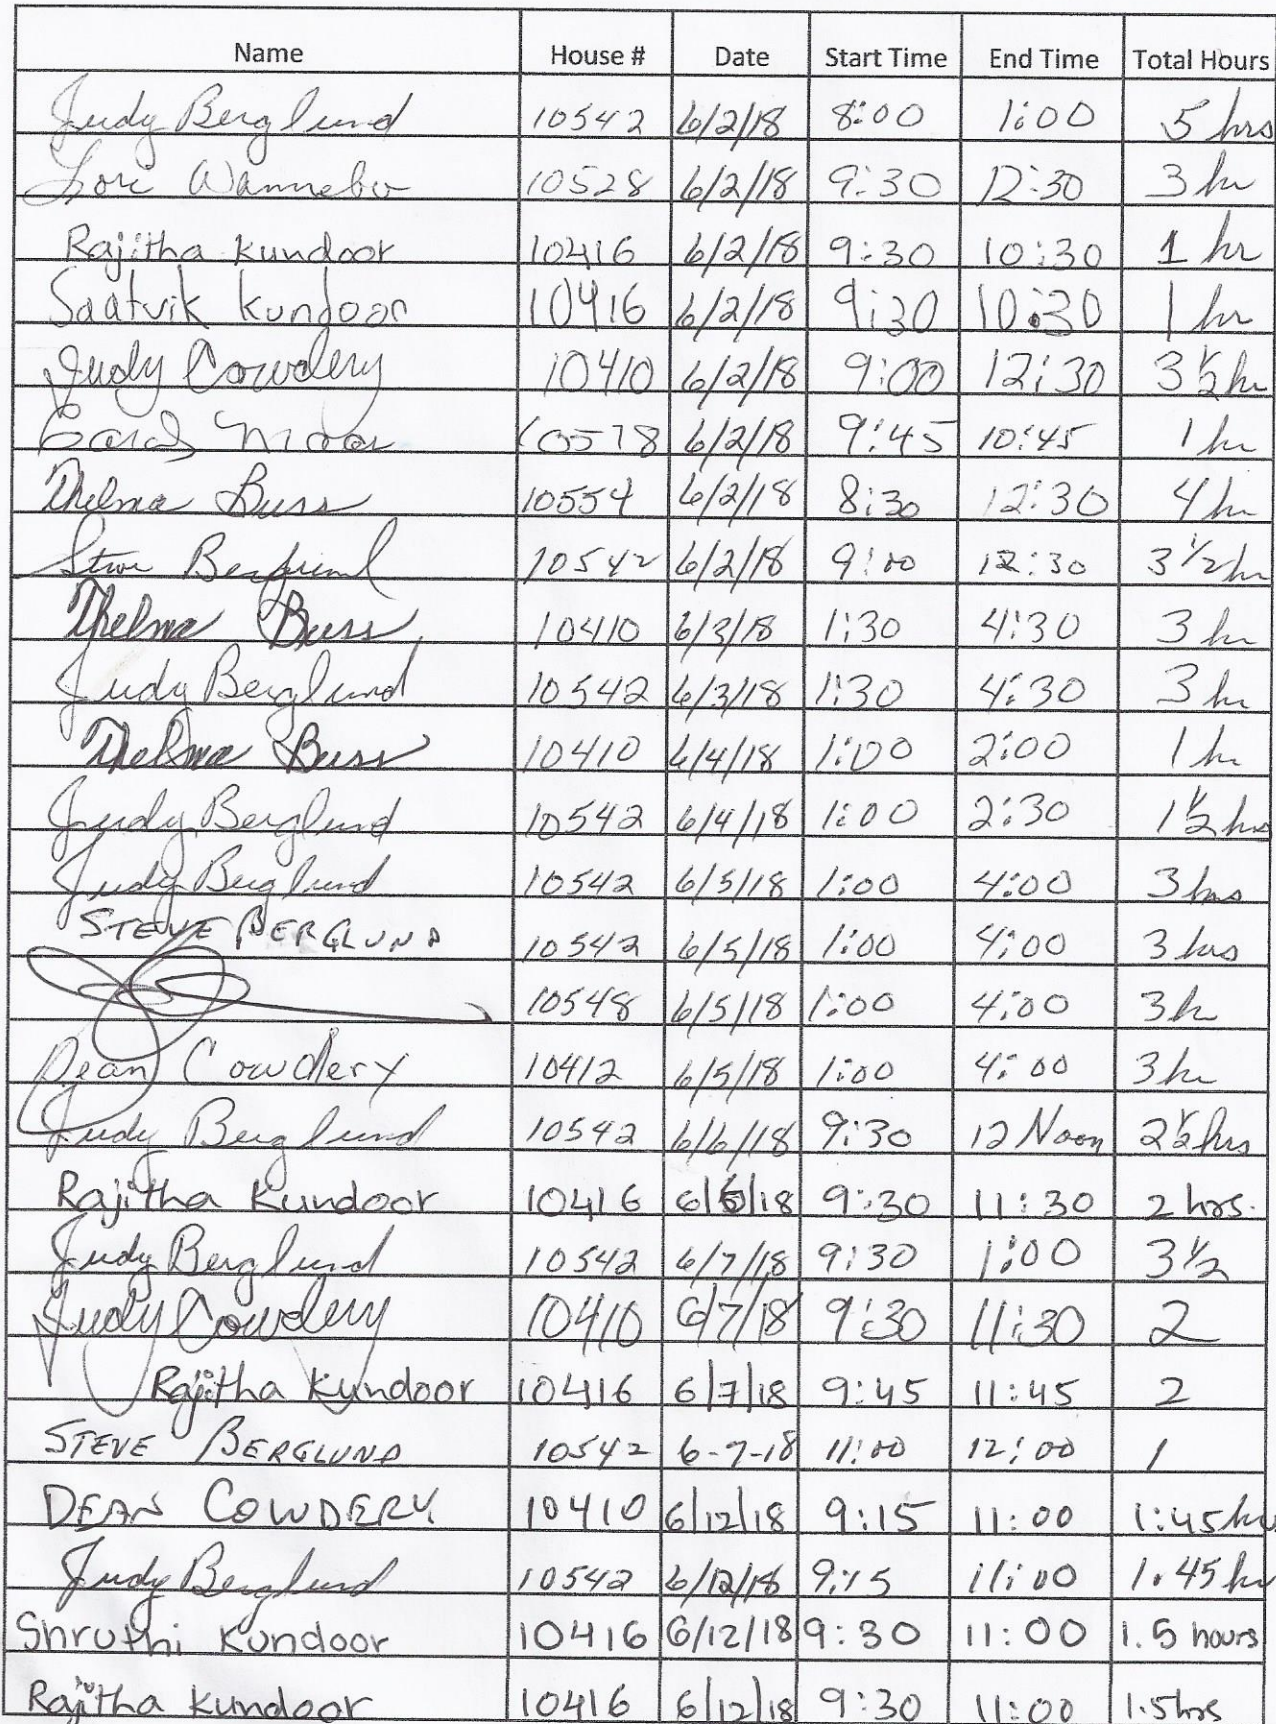 Name House # Date Start Time End Time Total Hours
Judy Berglund 10542 6/2/18 8:00 1:00 5 hrs
Lori Wannebo 10528 6/2/18 9:30 12:30 3 hr
Rajitha Kundoor 10416 6/2/18 9:30 10:30 1 hr
Saatvik Kundoor 10416 6/2/18 9:30 10:30 1 hr
Judy Cowdery 10410 6/2/18 9:00 12:30 3 1/2 hr
Carol 10578 6/2/18 9:45 10:45 1 hr
Thelma Buss 10554 6/2/18 8:30 12:30 4 hr
Steve 10542 6/2/18 9:00 12:30 3 1/2 hr
Thelma Buss 10410 6/3/18 1:30 4:30 3 hr
Judy Berglund 10542 6/3/18 1:30 4:30 3 hr
Thelma Buss 10410 6/4/18 1:00 2:00 1 hr
Judy Berglund 10542 6/4/18 1:00 2:30 1 1/2 hrs
Judy Berglund 10542 6/5/18 1:00 4:00 3 hrs
STEVE BERGLUND 10542 6/5/18 1:00 4:00 3 hrs
10548 6/5/18 1:00 4:00 3 hr
Dean Cowdery 10412 6/5/18 1:00 4:00 3 hr
Judy Berglund 10542 6/6/18 9:30 12 Noon 2 1/2 hrs
Rajitha Kundoor 10416 6/6/18 9:30 11:30 2 hrs.
Judy Berglund 10542 6/7/18 9:30 1:00 3 1/2
Judy Cowdery 10410 6/7/18 9:30 11:30 2
Rajitha Kundoor 10416 6/7/18 9:45 11:45 2
STEVE BERGLUND 10542 6-7-18 11:00 12:00 1
DEAN COWDERY 10410 6/12/18 9:15 11:00 1:45 hrs
Judy Berglund 10542 6/12/18 9:15 11:00 1.45 hr
Shruthi Kundoor 10416 6/12/18 9:30 11:00 1.5 hours
Rajitha Kundoor 10416 6/12/18 9:30 11:00 1.5 hrs